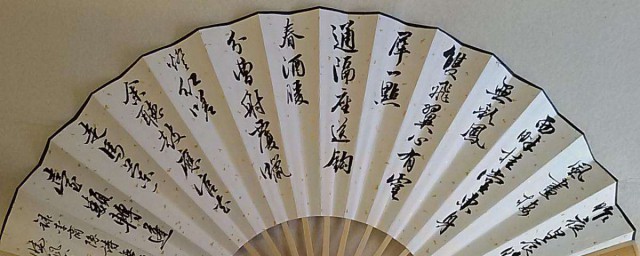 昨夜星辰
風畫樓
西畔桂堂東身
無彩鳳
雙飛翼心有靈
犀一點
通隔座送鈎
春酒暖
分曹射覆蠟
燈紅嗟
余聽鼓應官去
走馬蘭
臺類轉蓬
錄李商隱詩